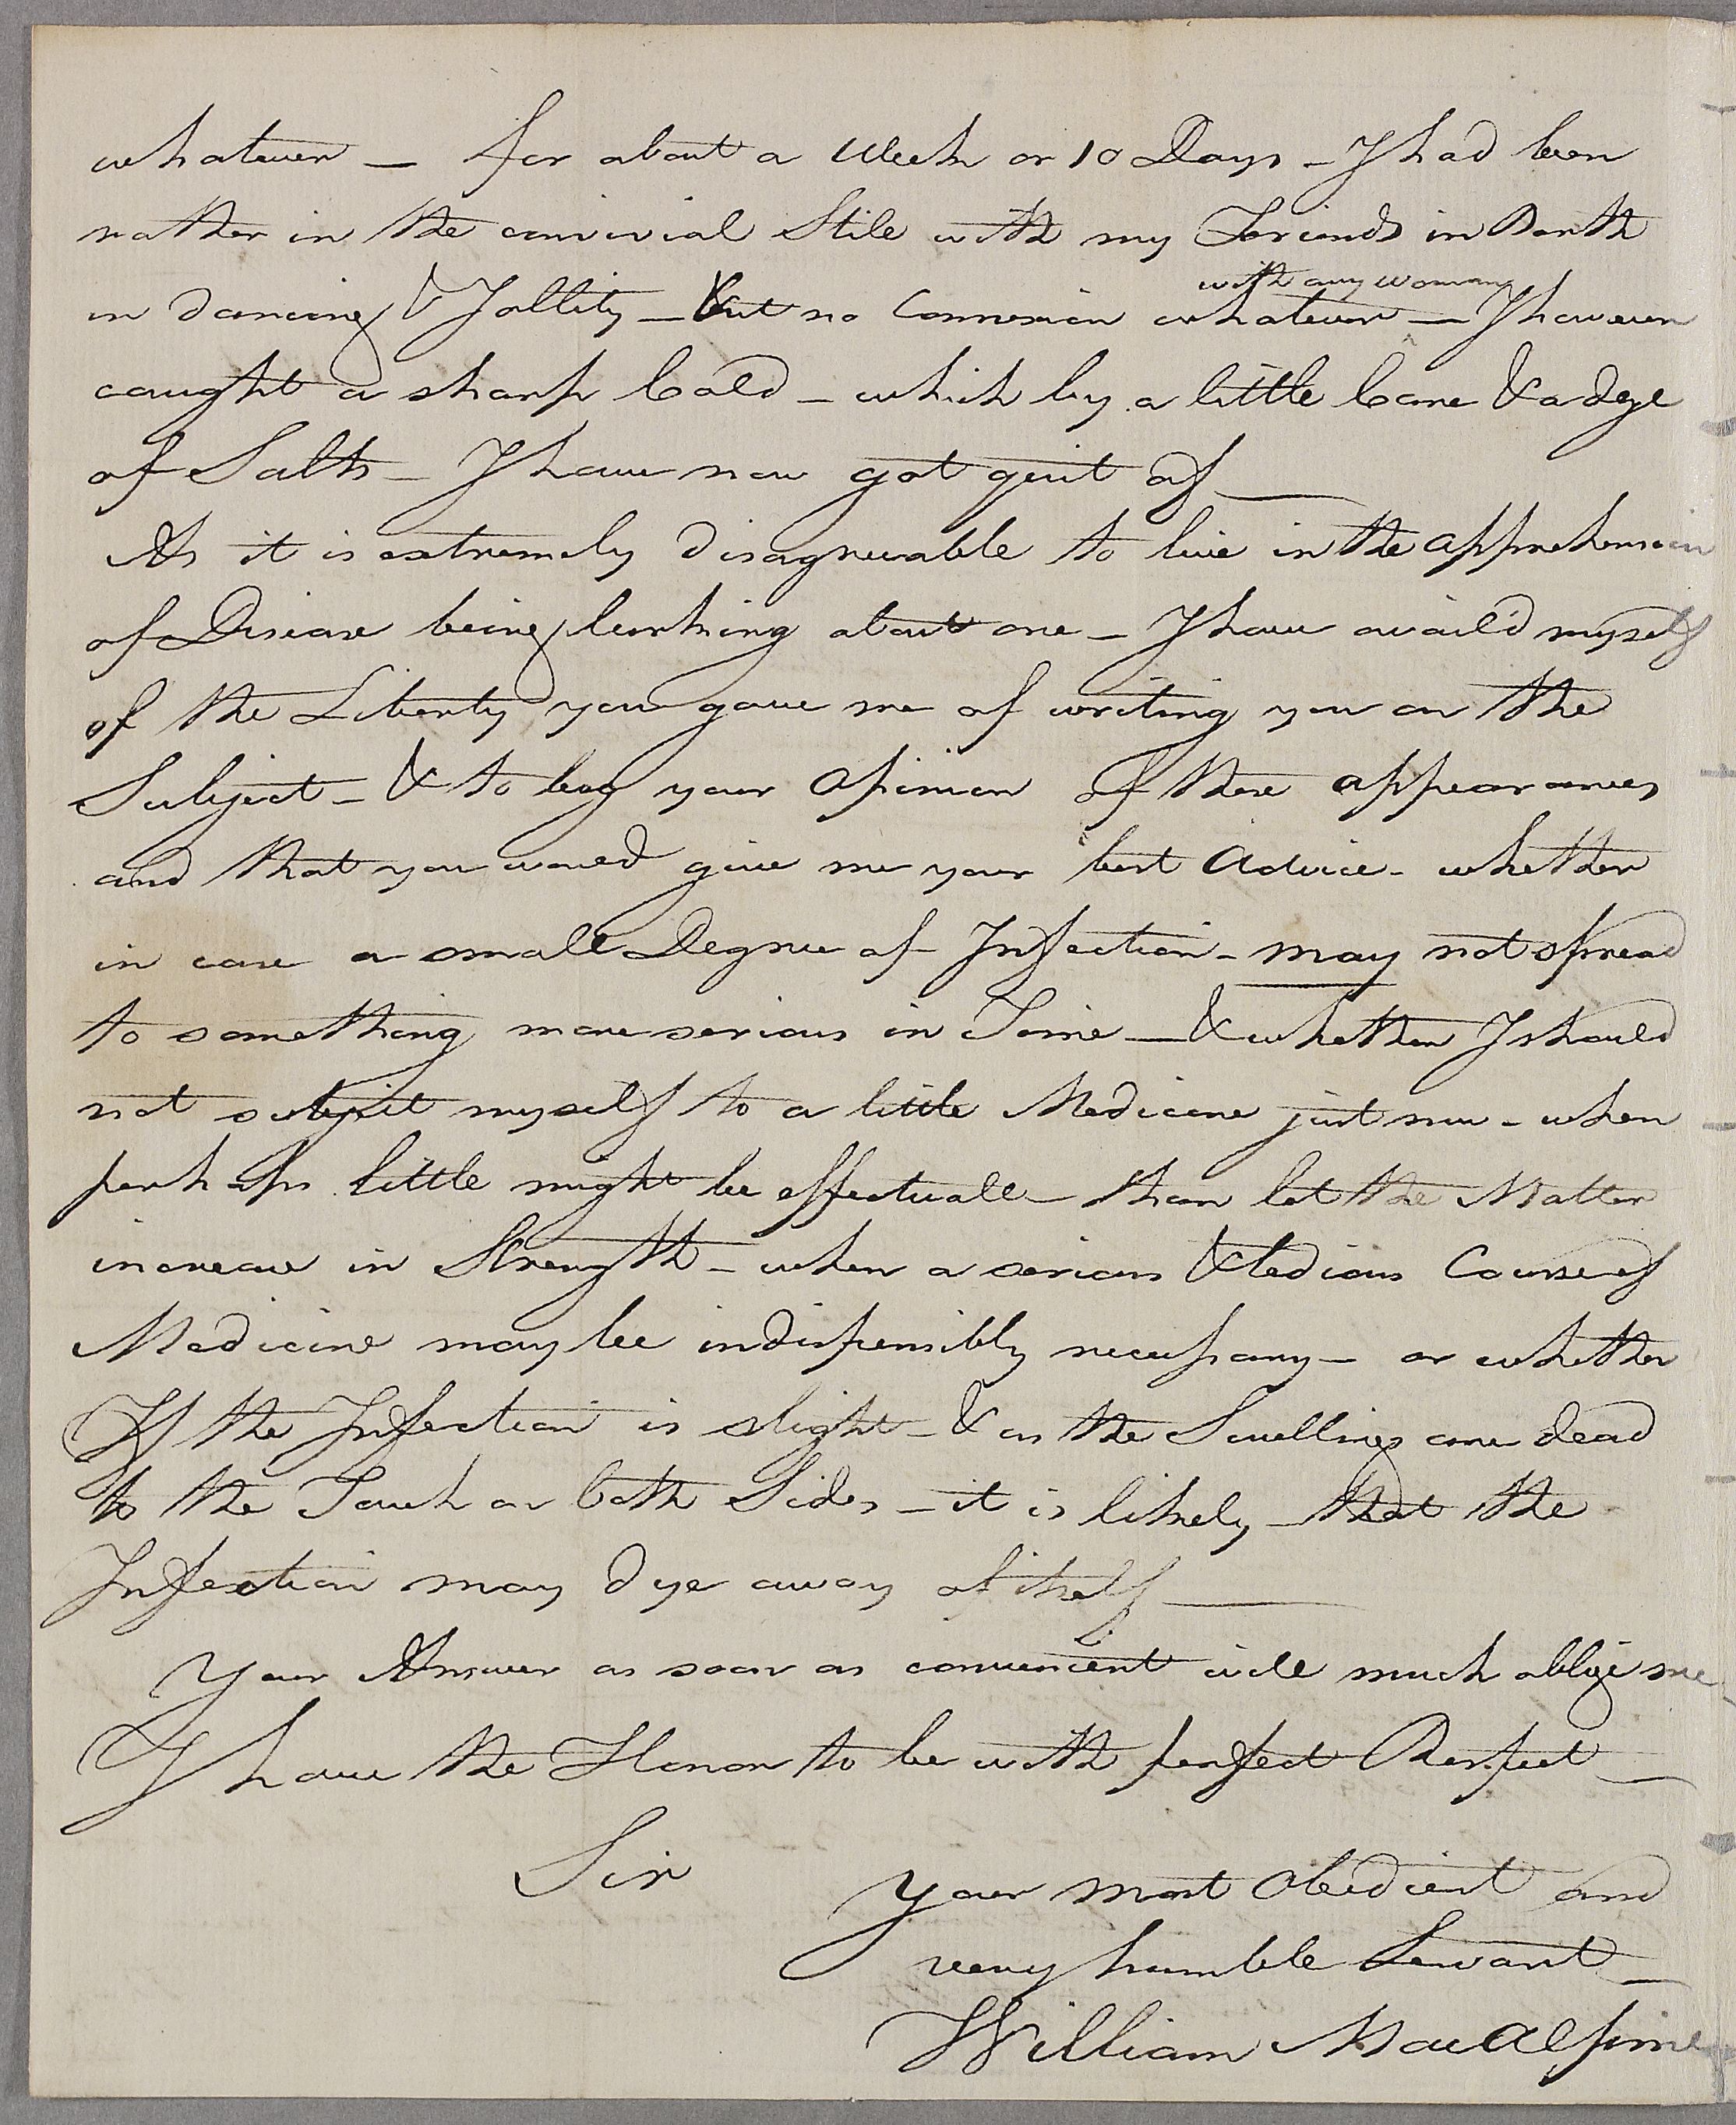 whatever — for about a Week or 10 Days — I had been
rather in the convivial Stile with my Friends in Perth
with any woman
in dancing & Jollity — but no Connexion whatever — I however
caught a sharp Cold — which by a little Care & a doze
of Salts — I have now got quit of —
As it is extremely disagreeable to live in the apprehension
of Disease being lurking about one — I have avail'd myself
of the Liberty you gave me of writing you on the
Subject — & to beg your Opinion of these appearances
and that you would give me your best Advice - whether
in case a small Degree of Infection - may not spread
to something more serious in Time — & whether I should
not subject myself to a little Medicine just now - when
perhaps little might be effectuall — than let the Matter
increase in Strength — when a serious & tedious Course of
Medicine may be indispensibly necessary — or whether
If the Infection is slight — & as the Swellings are dead
to the Touch on both Sides — it is likely — that the
Infection may dye away of itself —
Your Answer as soon as convenient will much oblige me —
I have the Honor to be with perfect Respect —
Sir
Your most Obedient and
very humble Servant —
William MacAlpine